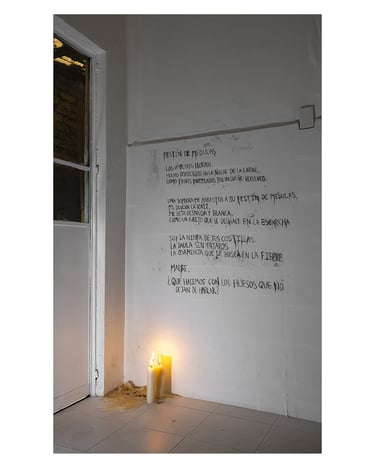 FESTÍN DE MÉDULAS
LAS VÉRTEBRAS LLORAN.
EN LA NOCHE DE LA CARNE,
COMO
UNA SOMBRA ME ARRASTRA A SU FESTÍN DE MÉDULAS,
ME DEVORA LA RAÍZ,
ME DEJA DESNUDA Y BLANCA,
COMO UN GRITO QUE SE DESHACE EN LA ESCARCHA
SOY LA NINFA DE TUS COSTILLAS.
LA JAULA SIN PÁJAROS
LA OSAMENTA QUE SE BUSCA EN LA FIEBRE
MADRE,
¿QUÉ HACEMOS CON LOS HUESOS QUE NO
DEJAN DE HABLAR?